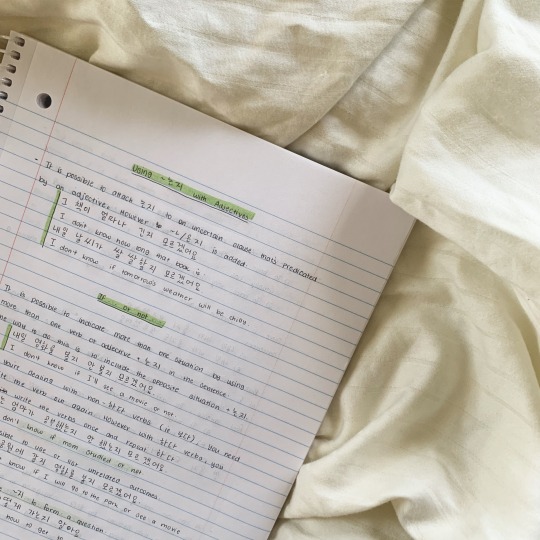 Using ~는지 with Adjectives
- It is possible to attach 는지 to an uncertain clause that's predicated
by an adjective. However ~ㄴ/은지 is added.
I 책이 얼마나 긴지 모르겠어요
I don't know how long that book is
내일 날씨가 쌀쌀할지 모르겠어요
I don't know if tomorrow's weather will be chilly
If or not
It is possible to indicate more than one situation by using
more than one verb or adjective + 는지 in the sentence.
way to do this is to include the opposite situation + 는지
내일 영화를 볼지 안 볼지 모르겠어요
I don't know if I'll see a movie or not
you're dealing with non-하다 verbs (ie 보다), you need
the verb out again. However with 하다 verbs, you
write the verbs once and repeat 하다
엄마가 공부했는지 안 했는지 모르겠어요
don't know if mom studied or not
possible to use or not unrelated outcomes.
공원에 갈지 영화를 볼지 모르겠어요
know if I will go to the park or see a movie
~지 to form a question
가는지 알아요
how to get to